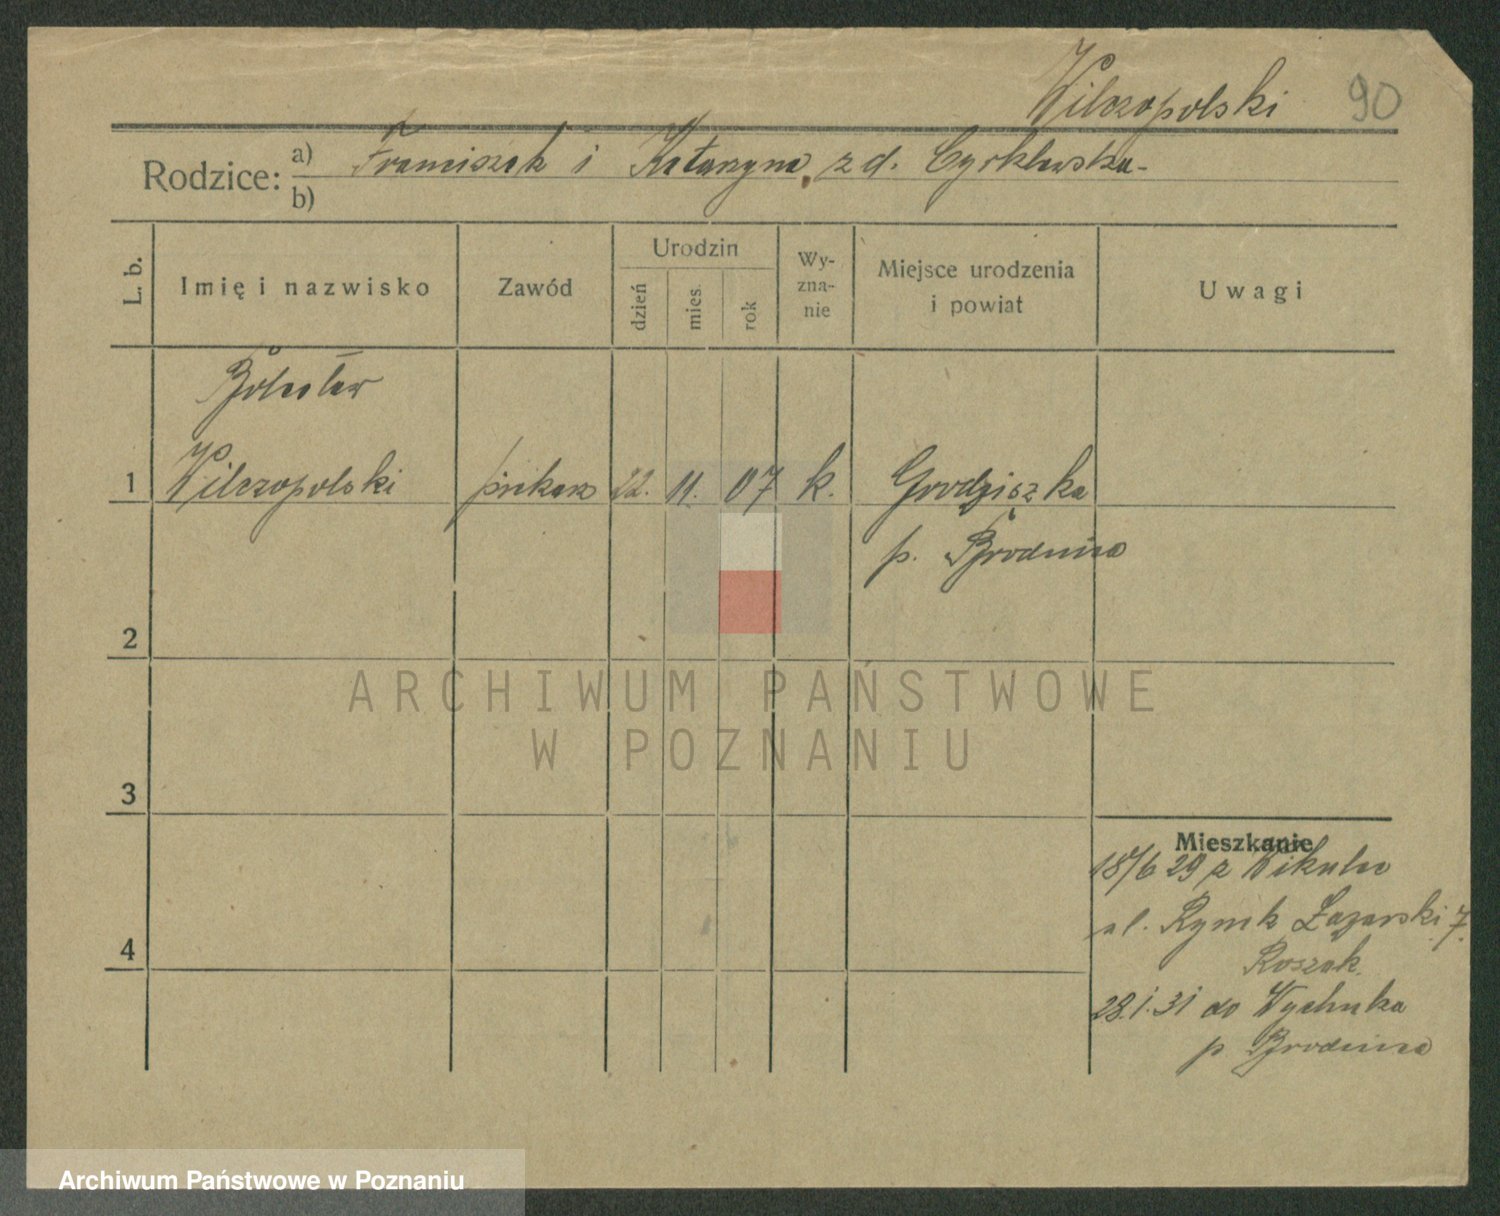 Wilczopolski 90
Rodzice: a) Franciszek i Katarzyna z d. Cyrklewska-
b)
L. b. Imię i nazwisko Zawód Urodzin dzień mies. rok Wy-zna-nie Miejsce urodzenia i powiat Uwagi
Bolesław
1 Wilczopolski piekarz 22. 11. 07 k. Grodziszka
p. Brodnica
2
ARCHIWUM PAŃSTWOWE
W POZNANIU
3
Mieszkanie
18/6 29 z
ul. Rynek Łazarski 7.
Roszak
4
28.1.31 do
p Brodnica
Archiwum Państwowe w Poznaniu